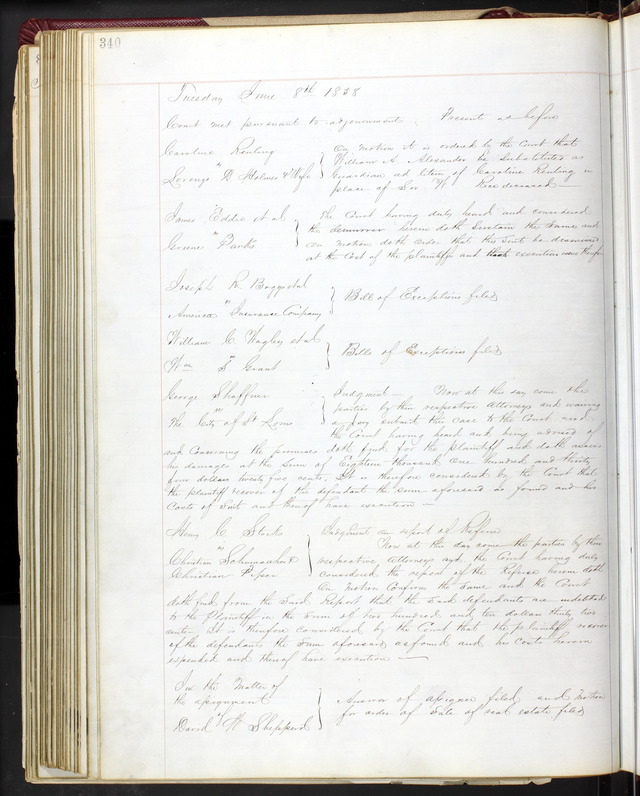 340
Tuesday June 8th 1858
Court met pursuant to adjournment. Present as before
Caroline Keuling
vs
Lorenzo D Holmes & Wife
On motion it is ordered by the Court that
William A. Alexander be substituted as
Guardian ad litem of Caroline Keuling in
place of deceased —
James Eddie et al
vs
Greene Parks
The Court having duly heard and considered
the demurrer herein doth sustain the same and
on motion doth order that this suit be dismissed
at the cost of the plaintiffs and that execution issue therefor
Joseph R. et al
vs
American Insurance Company
Bill of Exceptions filed
William C. Wagley et al
vs
Wm T Grant
Bills of Exceptions filed
George Shaffner
vs
The City of St Louis
Judgment — Now at this day come the
parties by their respective Attorneys and waiving
a Jury submit this case to the Court and
the Court having heard and being advised of
and concerning the premises doth find for the plaintiff and doth assess
his damages at the sum of Eighteen thousand one hundred and thirty
four dollars twenty five cents. It is therefore considered by the Court that
the plaintiff recover of the defendant the sum aforesaid as found and his
Costs of suit and thereof have execution —
Henry C. Stocks
vs
Christian Schumacher &
Christian Piper
Judgment on report of Referee
Now at this day come the parties by their
respective Attorneys and the Court having duly
considered the report of the Referee herein doth
on motion confirm the same and the Court
doth find from the said Report that the said defendants are indebted
to the Plaintiff in the sum of hundred and ten dollars thirty two
cents. It is therefore considered by the Court that the plaintiff recover
of the defendants the sum aforesaid as found and his Costs herein
expended and thereof have execution —
In the Matter of
the assignment
of
David W Shepperd
Answer of assignee filed and motion
for order of sale of real estate filed